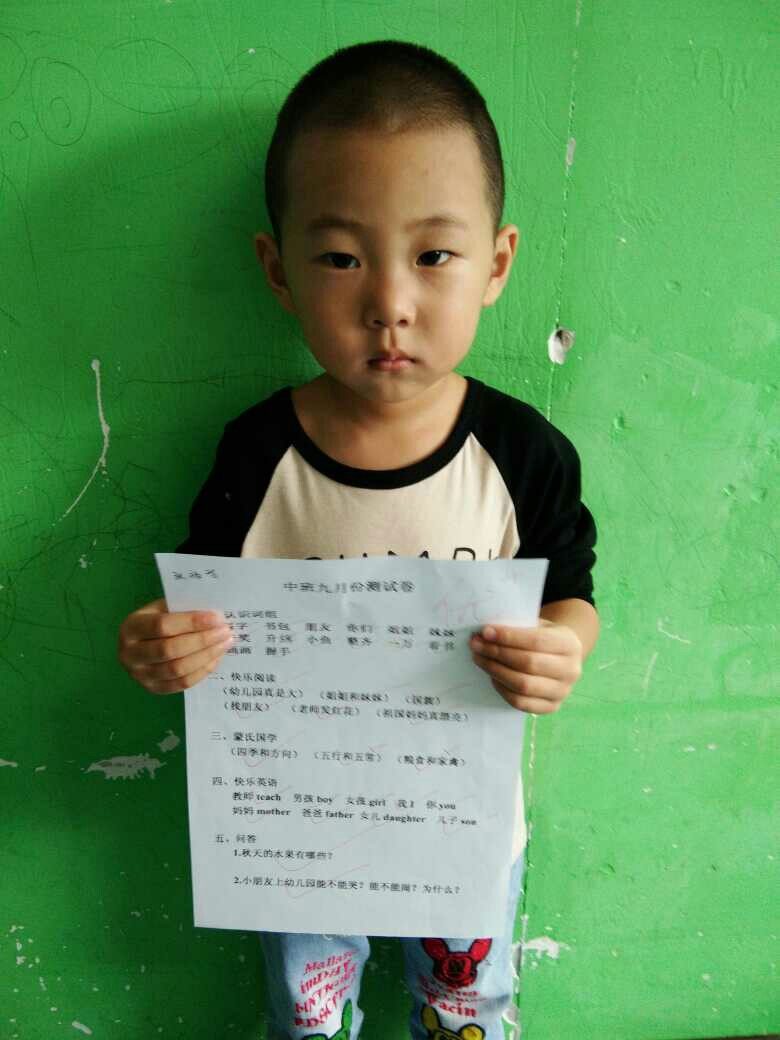 中班九月份测试卷
认识词组
写字 书包 朋友 你们 姐姐 妹妹
奖 升旗 小鱼 整齐 一万 看书
画画 握手
二、快乐阅读
（幼儿园真是大） （姐姐和妹妹） （国旗）
（找朋友） （老师发红花） （祖国妈妈真漂亮）
三、蒙氏国学
（四季和方向） （五行和五常） （粮食和家禽）
四、快乐英语
教师 teach 男孩 boy 女孩 girl 我 I 你 you
妈妈 mother 爸爸 father 女儿 daughter 儿子 son
五、问答
1.秋天的水果有哪些？
2.小朋友上幼儿园能不能哭？能不能闹？为什么？